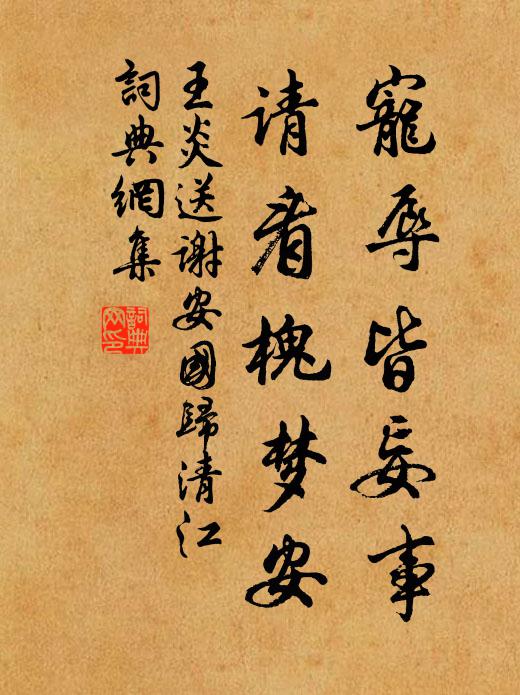 寵辱皆妄事
请看槐梦安
王炎送谢安國歸清江
詞典網集
詞典網印